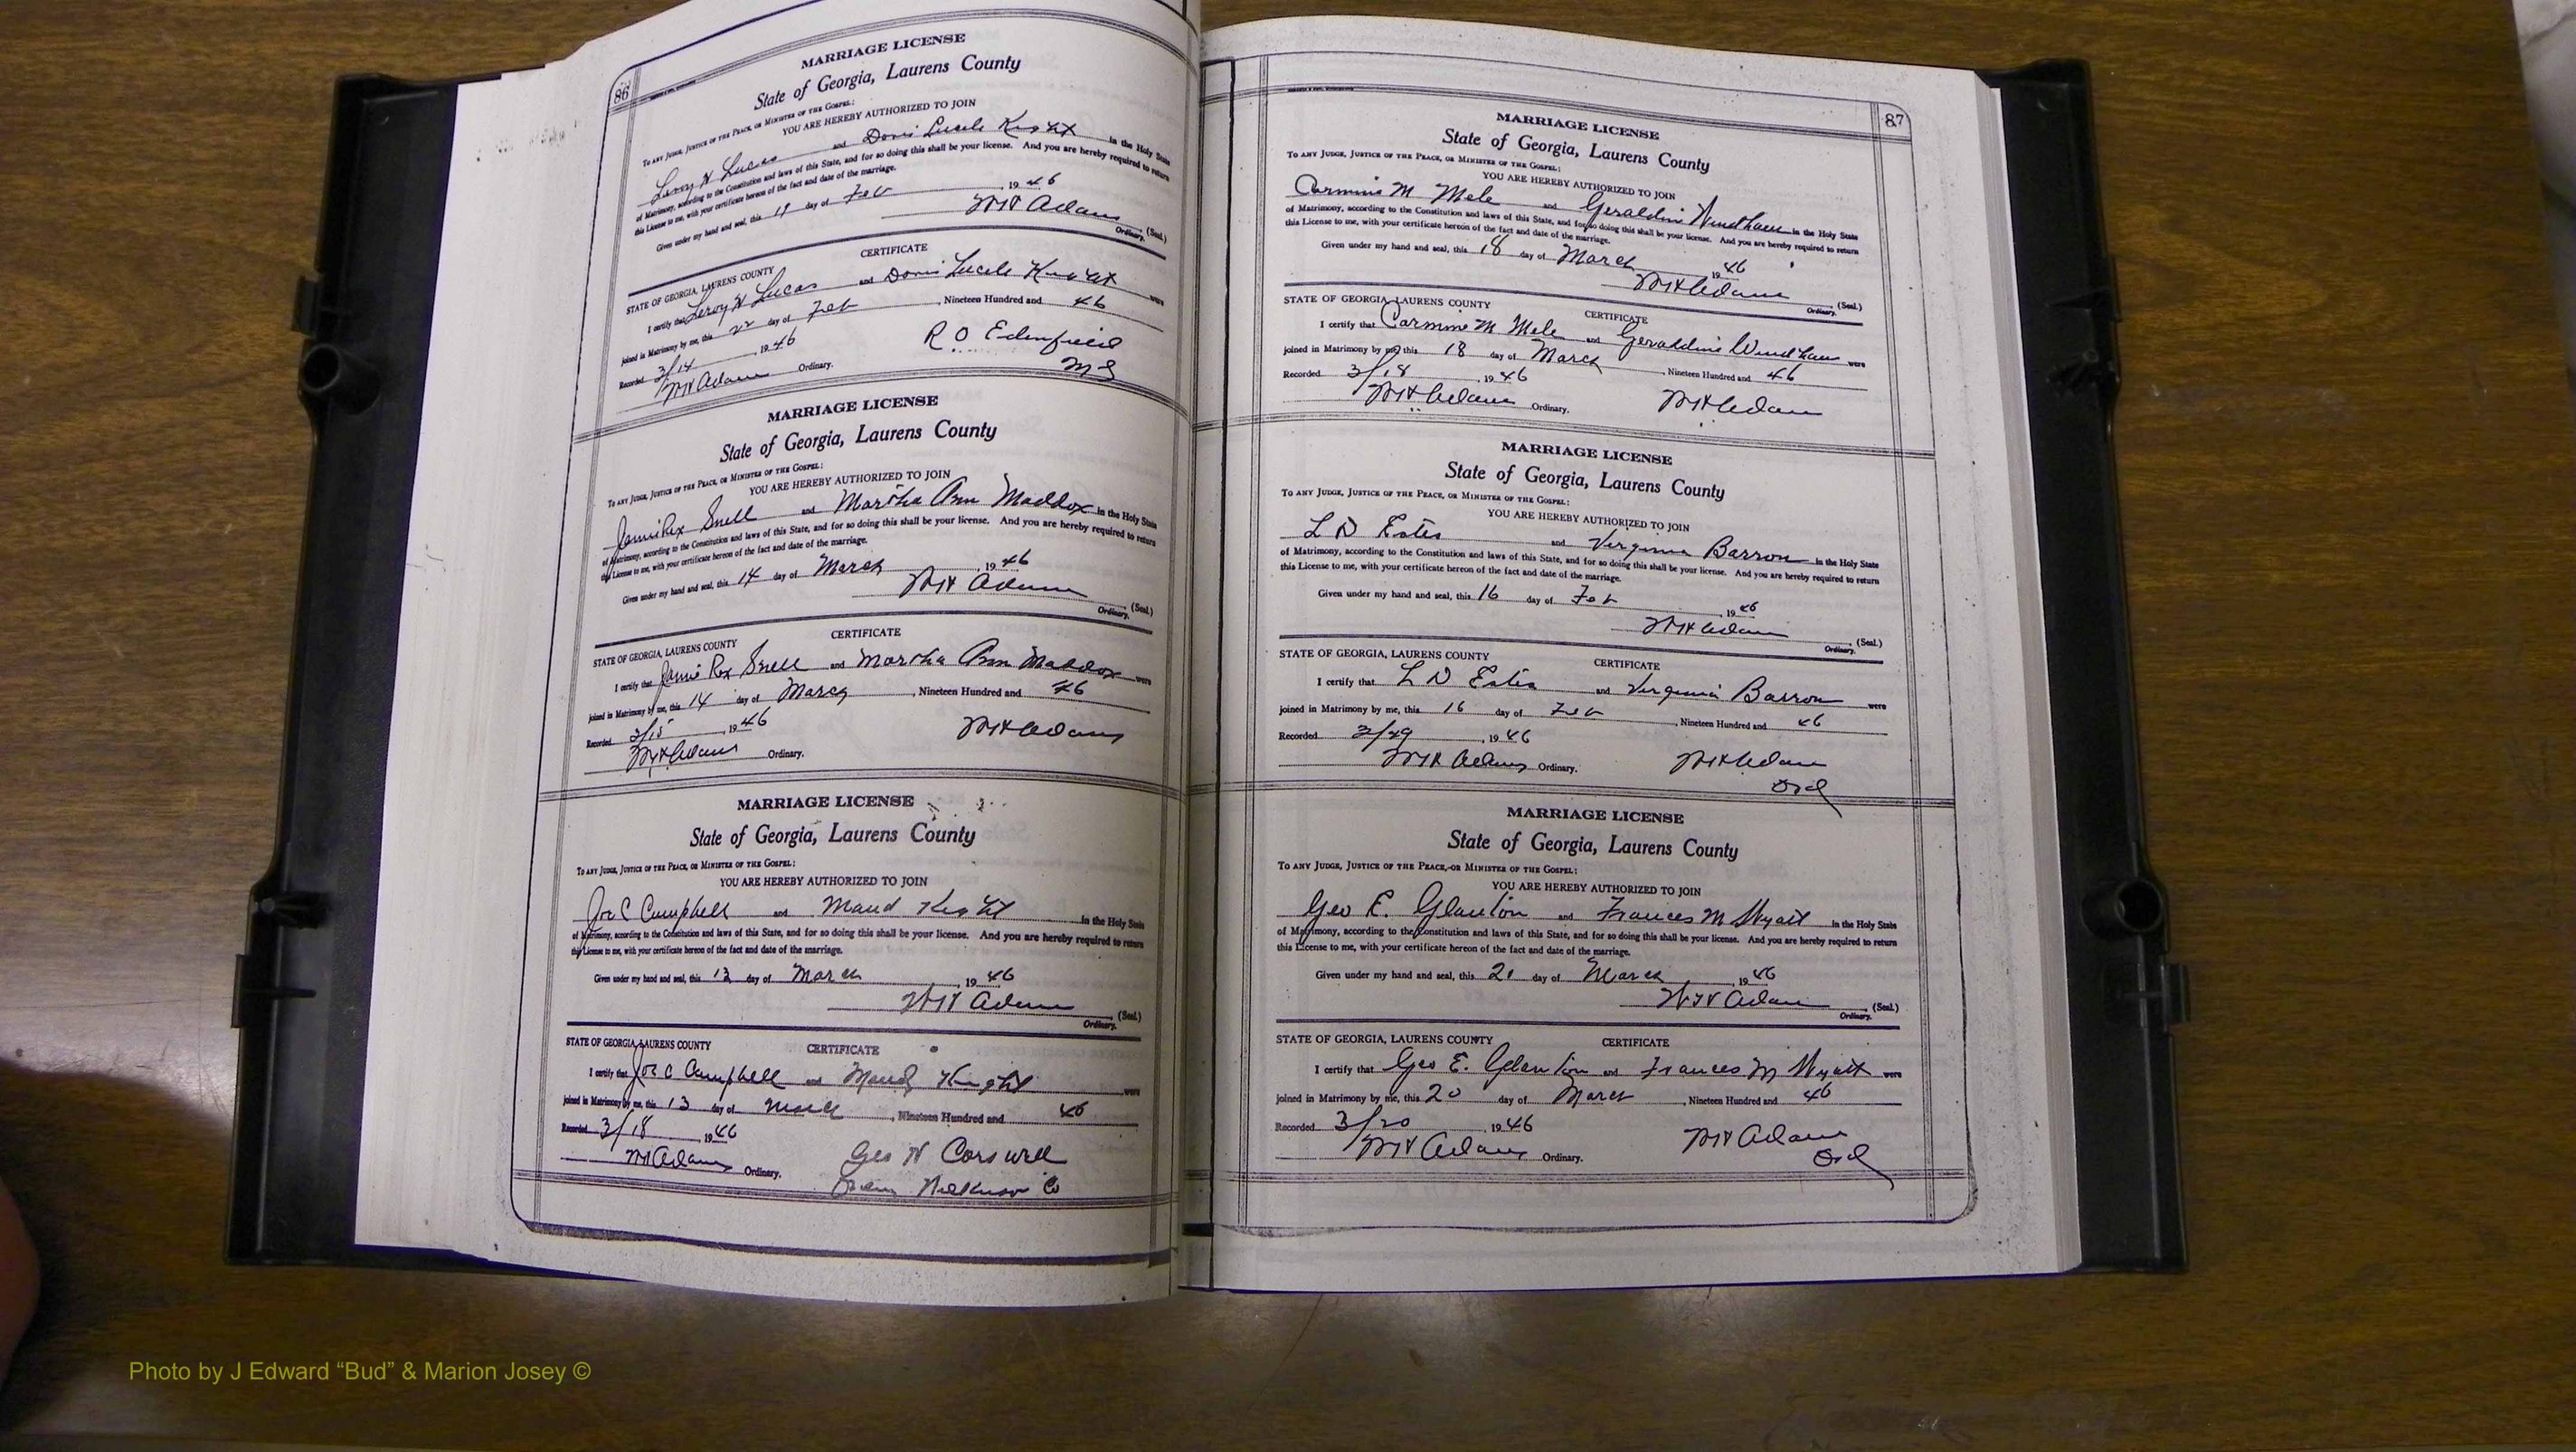 86
MARRIAGE LICENSE
State of Georgia, Laurens County
TO ANY JUDGE, JUSTICE OF THE PEACE, OR MINISTER OF THE GOSPEL:
YOU ARE HEREBY AUTHORIZED TO JOIN
Leroy H Lucas and Doris Lucile Knight in the Holy State
of Matrimony, according to the Constitution and laws of this State, and for so doing this shall be your license. And you are hereby required to return
this License to me, with your certificate hereon of the fact and date of the marriage.
Given under my hand and seal, this 19 day of Feb 1946
Adams (Seal.)
Ordinary.
CERTIFICATE
STATE OF GEORGIA, LAURENS COUNTY
I certify that Leroy H Lucas and Doris Lucile Knight were
joined in Matrimony by me, this 22 day of Feb, Nineteen Hundred and 46
Recorded 3/14, 1946
Adams Ordinary.
R O Edenfield
MG
MARRIAGE LICENSE
State of Georgia, Laurens County
TO ANY JUDGE, JUSTICE OF THE PEACE, OR MINISTER OF THE GOSPEL:
YOU ARE HEREBY AUTHORIZED TO JOIN
Rex Snell and Martha Ann Maddox in the Holy State
of Matrimony, according to the Constitution and laws of this State, and for so doing this shall be your license. And you are hereby required to return
this License to me, with your certificate hereon of the fact and date of the marriage.
Given under my hand and seal, this 14 day of March, 1946
Adams (Seal.)
Ordinary.
CERTIFICATE
STATE OF GEORGIA, LAURENS COUNTY
I certify that Rex Snell and Martha Ann Maddox were
joined in Matrimony by me, this 14 day of March, Nineteen Hundred and 46
Recorded 3/15, 1946
Adams Ordinary.
Adams
MARRIAGE LICENSE
State of Georgia, Laurens County
TO ANY JUDGE, JUSTICE OF THE PEACE, OR MINISTER OF THE GOSPEL:
YOU ARE HEREBY AUTHORIZED TO JOIN
Joe C Campbell and Maud Knight in the Holy State
of Matrimony, according to the Constitution and laws of this State, and for so doing this shall be your license. And you are hereby required to return
this License to me, with your certificate hereon of the fact and date of the marriage.
Given under my hand and seal, this 13 day of March, 1946
Adams (Seal.)
Ordinary.
STATE OF GEORGIA, LAURENS COUNTY CERTIFICATE
I certify that Joe C Campbell and Maud Knight were
joined in Matrimony by me, this 13 day of March, Nineteen Hundred and 46
Recorded 3/18, 1946
Adams Ordinary.
Geo H Carswell
Wilkinson Co
87
MARRIAGE LICENSE
State of Georgia, Laurens County
TO ANY JUDGE, JUSTICE OF THE PEACE, OR MINISTER OF THE GOSPEL:
YOU ARE HEREBY AUTHORIZED TO JOIN
Carmine M Mele and Geraldine Windham in the Holy State
of Matrimony, according to the Constitution and laws of this State, and for so doing this shall be your license. And you are hereby required to return
this License to me, with your certificate hereon of the fact and date of the marriage.
Given under my hand and seal, this 18 day of March 1946
Adams (Seal.)
Ordinary.
STATE OF GEORGIA, LAURENS COUNTY CERTIFICATE
I certify that Carmine M Mele and Geraldine Windham were
joined in Matrimony by me, this 18 day of March, Nineteen Hundred and 46
Recorded 3/18, 1946
Adams Ordinary.
Adams
MARRIAGE LICENSE
State of Georgia, Laurens County
TO ANY JUDGE, JUSTICE OF THE PEACE, OR MINISTER OF THE GOSPEL:
YOU ARE HEREBY AUTHORIZED TO JOIN
L D Estes and Virginia Barron in the Holy State
of Matrimony, according to the Constitution and laws of this State, and for so doing this shall be your license. And you are hereby required to return
this License to me, with your certificate hereon of the fact and date of the marriage.
Given under my hand and seal, this 16 day of Feb, 1946
Adams (Seal.)
Ordinary.
STATE OF GEORGIA, LAURENS COUNTY CERTIFICATE
I certify that L D Estes and Virginia Barron were
joined in Matrimony by me, this 16 day of Feb, Nineteen Hundred and 46
Recorded, 1946
Adams Ordinary.
Adams
Ord
MARRIAGE LICENSE
State of Georgia, Laurens County
TO ANY JUDGE, JUSTICE OF THE PEACE, OR MINISTER OF THE GOSPEL:
YOU ARE HEREBY AUTHORIZED TO JOIN
Geo E. Glanton and Frances M Wyatt in the Holy State
of Matrimony, according to the Constitution and laws of this State, and for so doing this shall be your license. And you are hereby required to return
this License to me, with your certificate hereon of the fact and date of the marriage.
Given under my hand and seal, this 20 day of March, 1946
Adams (Seal.)
Ordinary.
STATE OF GEORGIA, LAURENS COUNTY CERTIFICATE
I certify that Geo E. Glanton and Frances M Wyatt were
joined in Matrimony by me, this 20 day of March, Nineteen Hundred and 46
Recorded 3/20, 1946
Adams Ordinary.
Adams
Ord
Photo by J Edward “Bud” & Marion Josey ©